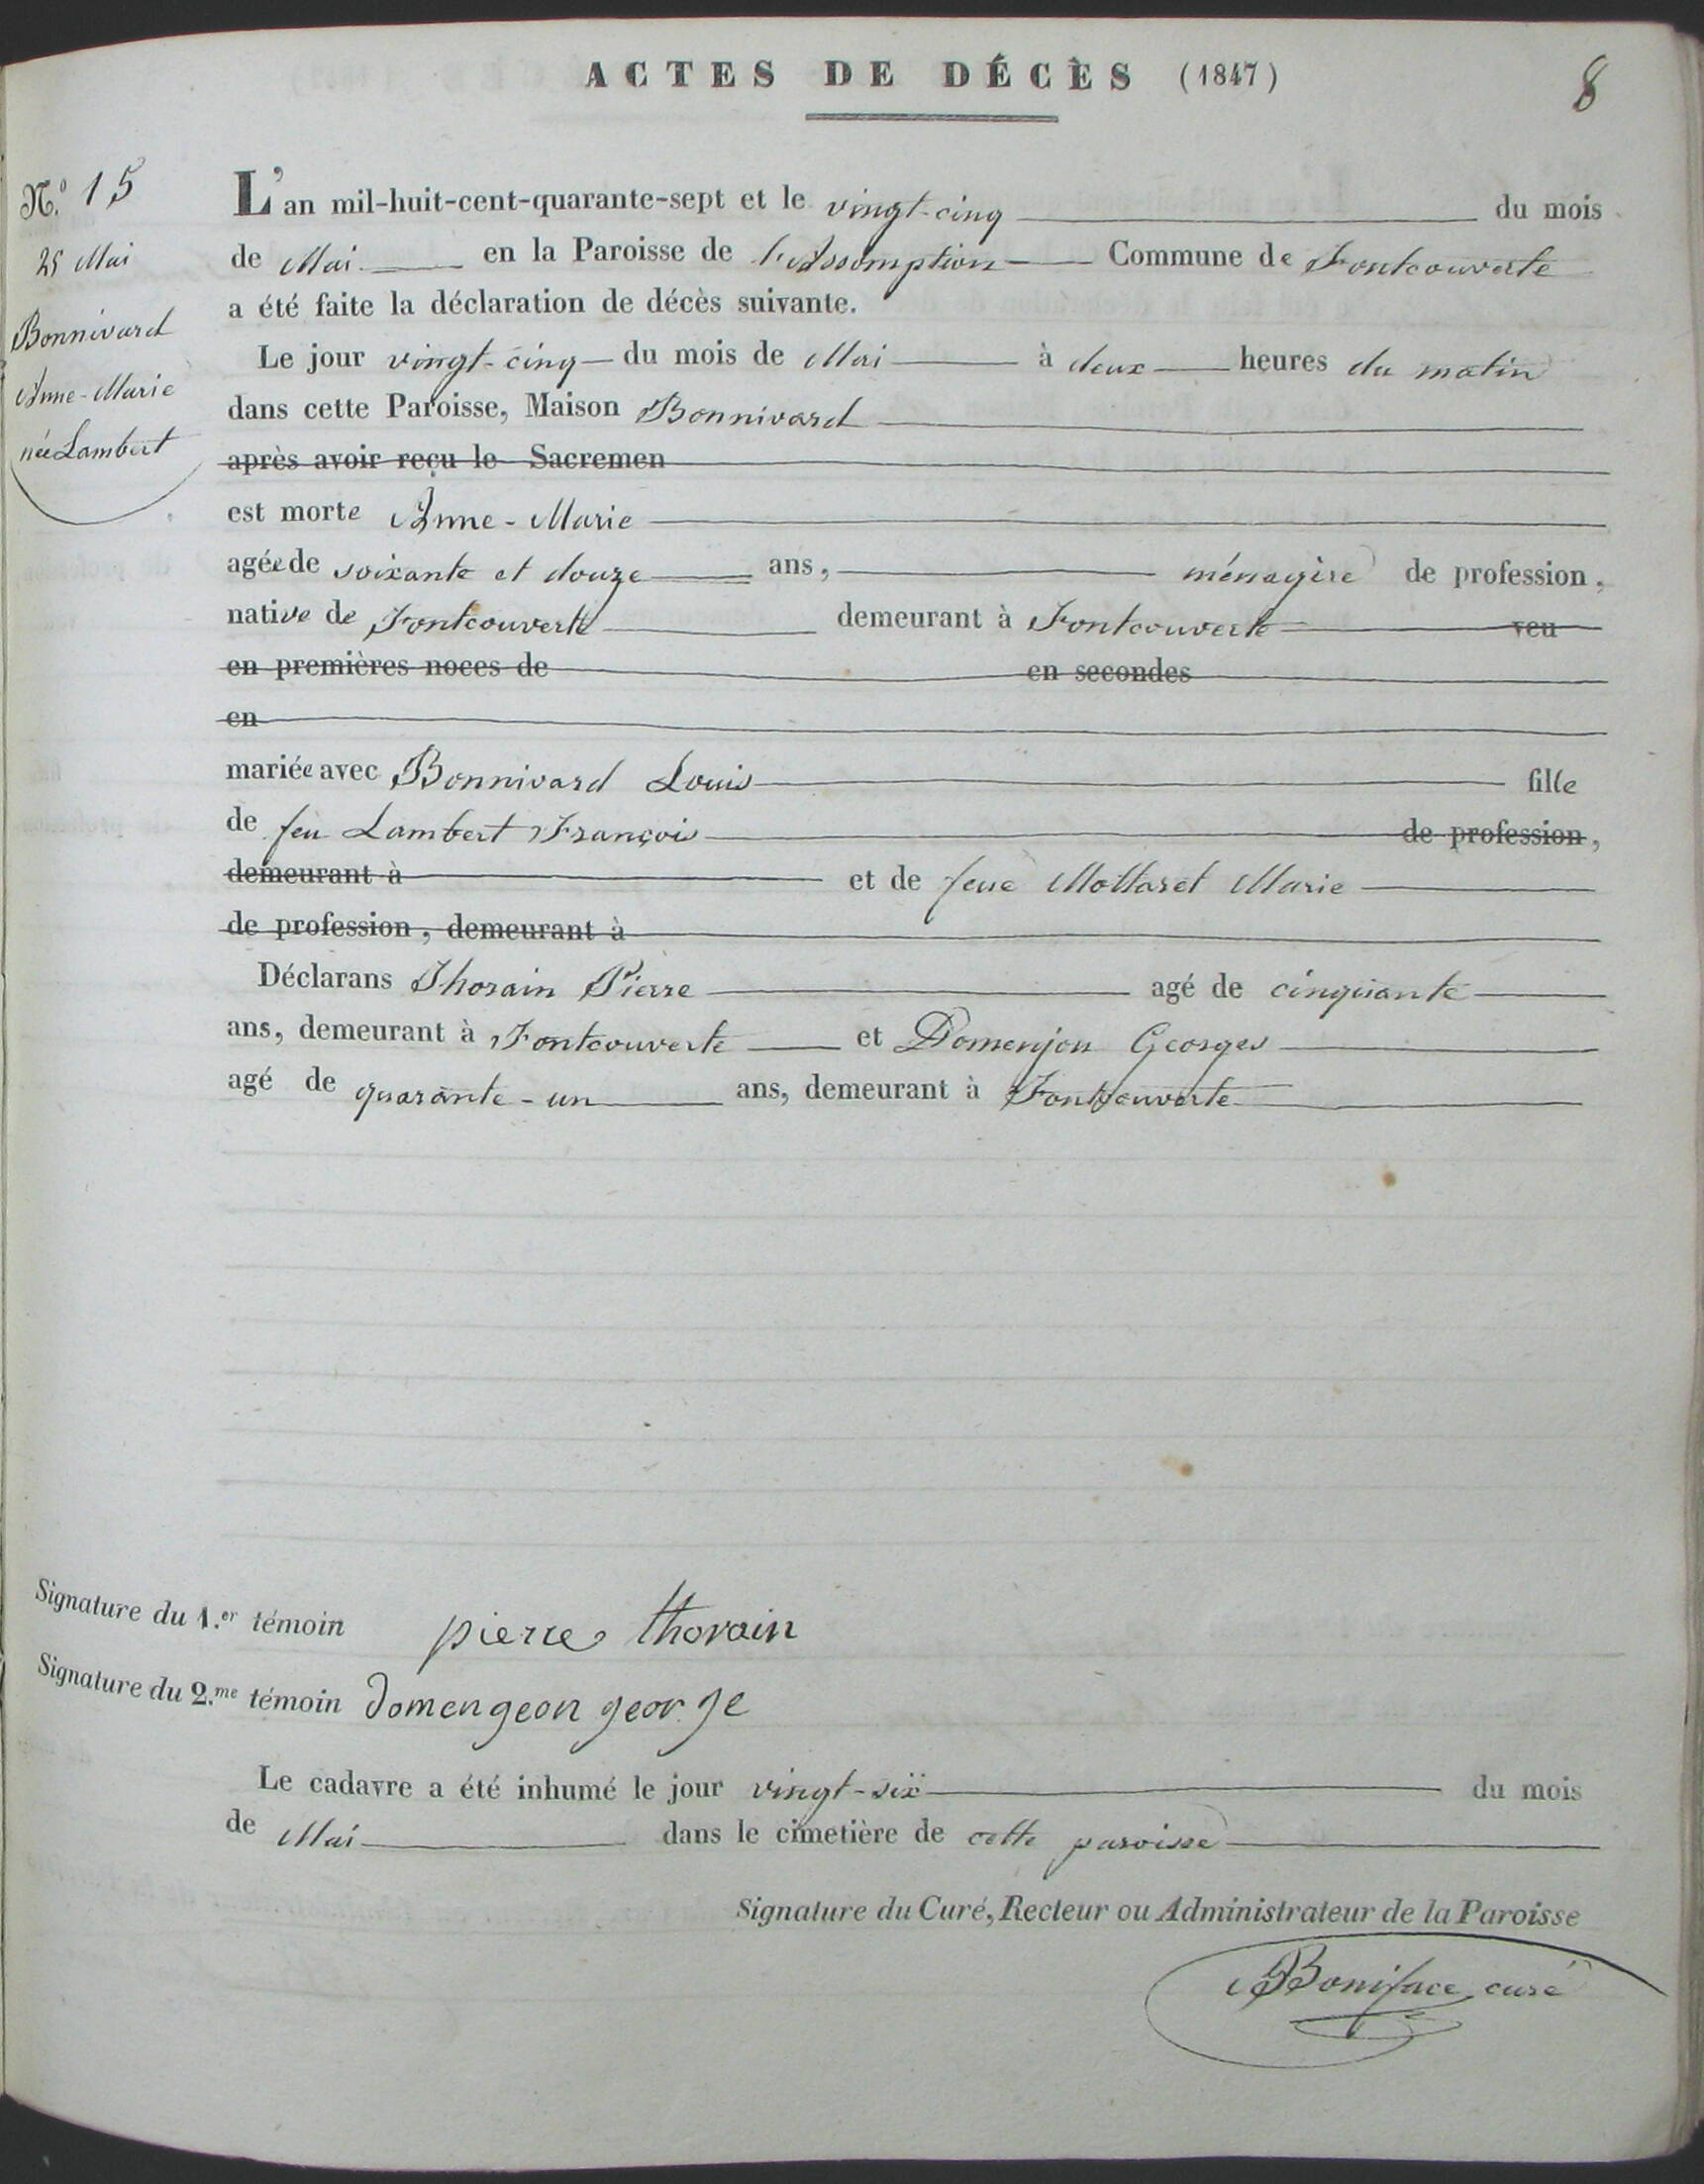 ACTES DE DÉCÈS (1847)
8
N.º 15
25 Mai
Bonnivard
Anne-Marie
née Lambert
L'an mil-huit-cent-quarante-sept et le vingt-cinq du mois
de Mai en la Paroisse de l'Assomption Commune de Fontcouverte
a été faite la déclaration de décès suivante.
Le jour vingt-cinq du mois de Mai à deux heures du matin
dans cette Paroisse, Maison Bonnivard
après avoir reçu le Sacremen
est morte Anne-Marie
agée de soixante et douze ans, ménagère de profession,
native de Fontcouverte demeurant à Fontcouverte veu
en premières noces de en secondes
en
mariée avec Bonnivard Louis fille
de feu Lambert François de profession,
demeurant à et de feue Mottaret Marie
de profession, demeurant à
Déclarans Thorain Pierre agé de cinquante
ans, demeurant à Fontcouverte et Domenjon Georges
agé de quarante-un ans, demeurant à Fontcouverte
Signature du 1.er témoin pierre thorain
Signature du 2.me témoin domengeon george
Le cadavre a été inhumé le jour vingt-six du mois
de Mai dans le cimetière de cette paroisse
Signature du Curé, Recteur ou Administrateur de la Paroisse
Boniface curé